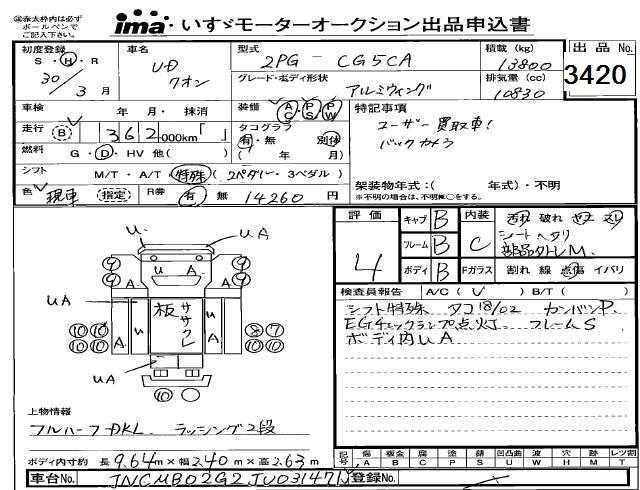 ㊟赤太枠内は必ず
ボールペンで
ご記入ください。
ima・いすゞモーターオークション出品申込書
初度登録
S・H・R
30/3月
車名
UD
クオン
型式
2PG - CG5CA
グレード・ボディ形状
アルミウィング
積載 (kg)
13800
排気量 (cc)
10830
出品 No.
3420
車検 年・月・抹消
装備 AC・PS・PW
走行 B 362,000km「 」
タコグラフ
有・無 別体
( 年 月)
燃料 G・D・HV 他( )
シフト M/T・A/T 特殊(2ペダル・3ペダル)
色 現車 (指定) R券 有 無 14260 円
特記事項
ユーザー買取車!
バックカメラ
架装物年式:( 年式)・不明
※不明の場合は、不明に○をする。
評価
4
キャブ B
フレーム B
ボディ B
内装 C
汚れ 破れ
シートヘタリ
部品外しM.
Fガラス 割れ 線 点傷 イバリ
検査員報告 A/C ( ) B/T ( )
シフト特殊 タコ18/02 カンバンP.
EGチェックランプ点灯. フレームS
ボディ内UA
U
UA
U
U A
A
A
UA
A
u
板ササクレ
u
A
UA
④
④
④
④
⑩⑩
⑩⑩
⑧⑦
⑩⑩
⑩
上物情報
フルハーフDKL. ラッシング2段
ボディ内寸約 長9.64m×幅2.40m×高2.63m
記号 傷A 板金B 腐C 塗P 錆S 凹凸U 曲W 穴H M T
車台No. JNCMB02G2JU031471 登録No.